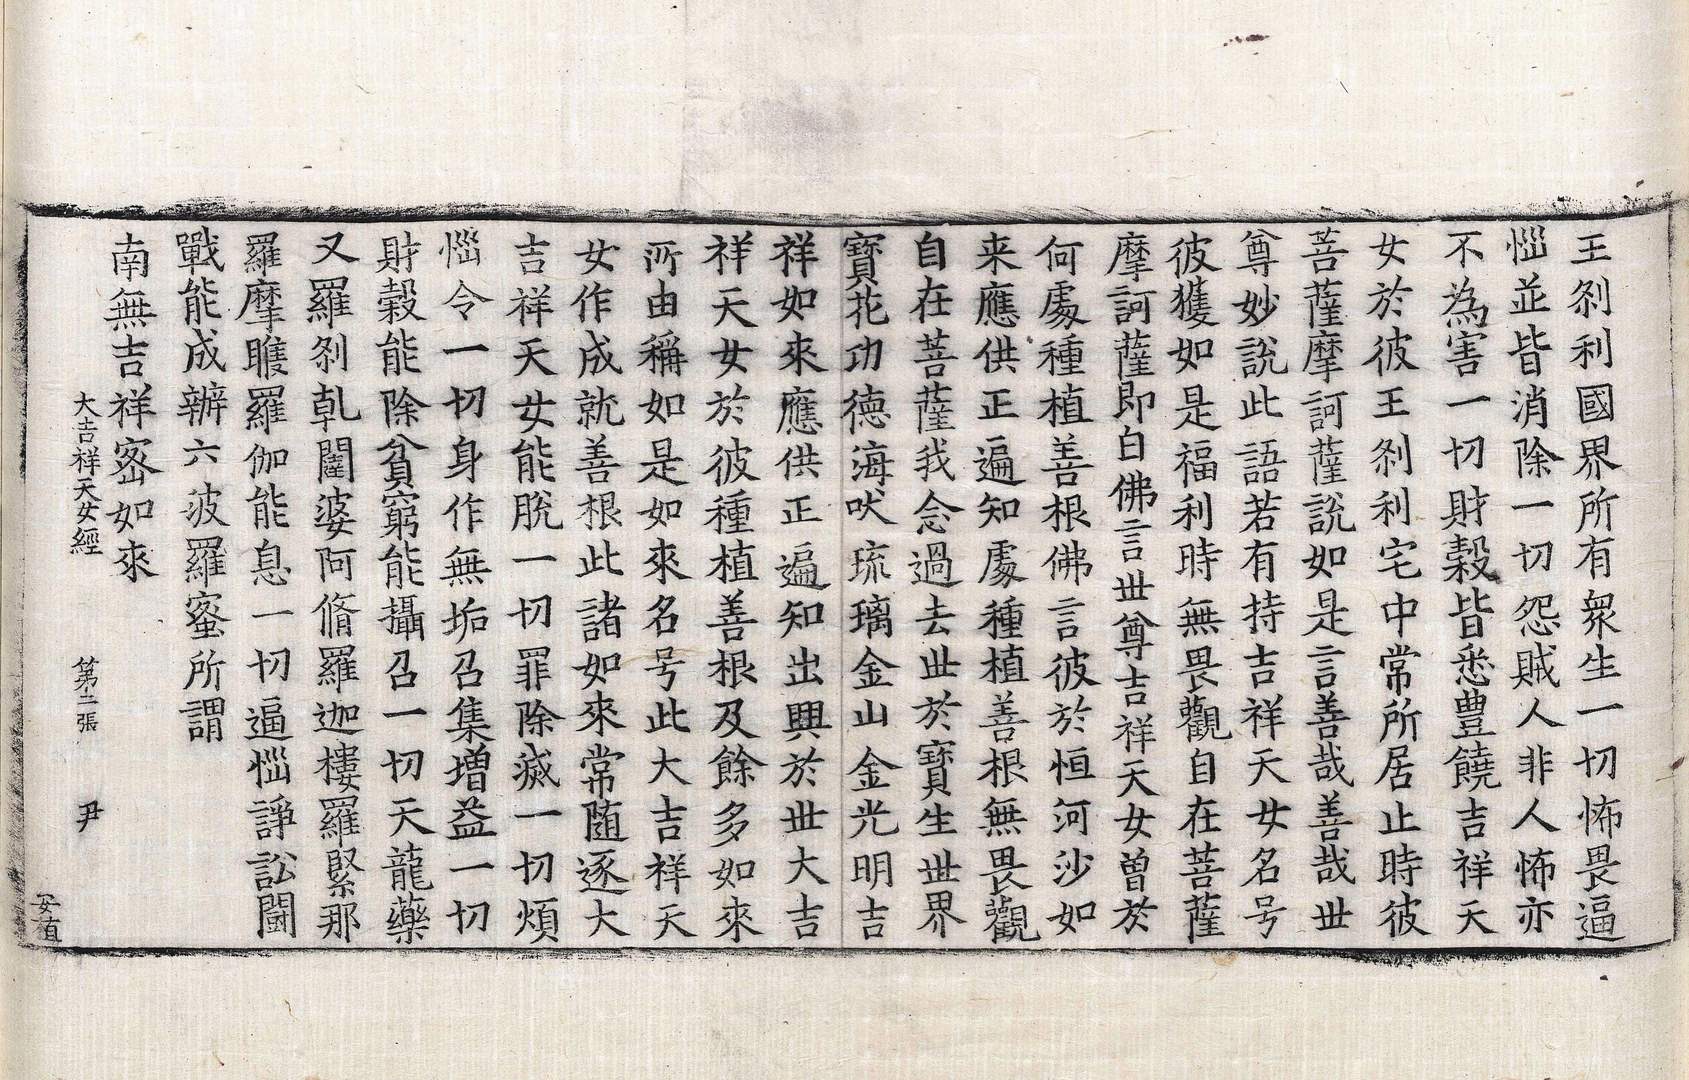 王刹利國界所有衆生一切怖畏逼
惱並皆消除一切怨賊人非人怖亦
不為害一切財穀皆悉豊饒吉祥天
女於彼王刹利宅中常所居止時彼
菩薩摩訶薩說如是言善哉善哉世
尊妙說此語若有持吉祥天女名号
彼獲如是福利時無畏觀自在菩薩
摩訶薩即白佛言世尊吉祥天女曽於
何處種植善根佛言彼於恒河沙如
来應供正遍知處種植善根無畏觀
自在菩薩我念過去世於寶生世界
寶花功德海吠琉璃金山金光明吉
祥如來應供正遍知出興於世大吉
祥天女於彼種植善根及餘多如來
所由稱如是如來名号此大吉祥天
女作成就善根此諸如來常随逐大
吉祥天女能脫一切罪除滅一切煩
惱令一切身作無垢召集増益一切
財穀能除貧窮能攝召一切天龍藥
叉羅刹乹闥婆阿脩羅迦樓羅緊那
羅摩睺羅伽能息一切逼惱諍訟闘
戰能成辦六波羅蜜所謂
南無吉祥密如來
大吉祥天女經 第二張 尹